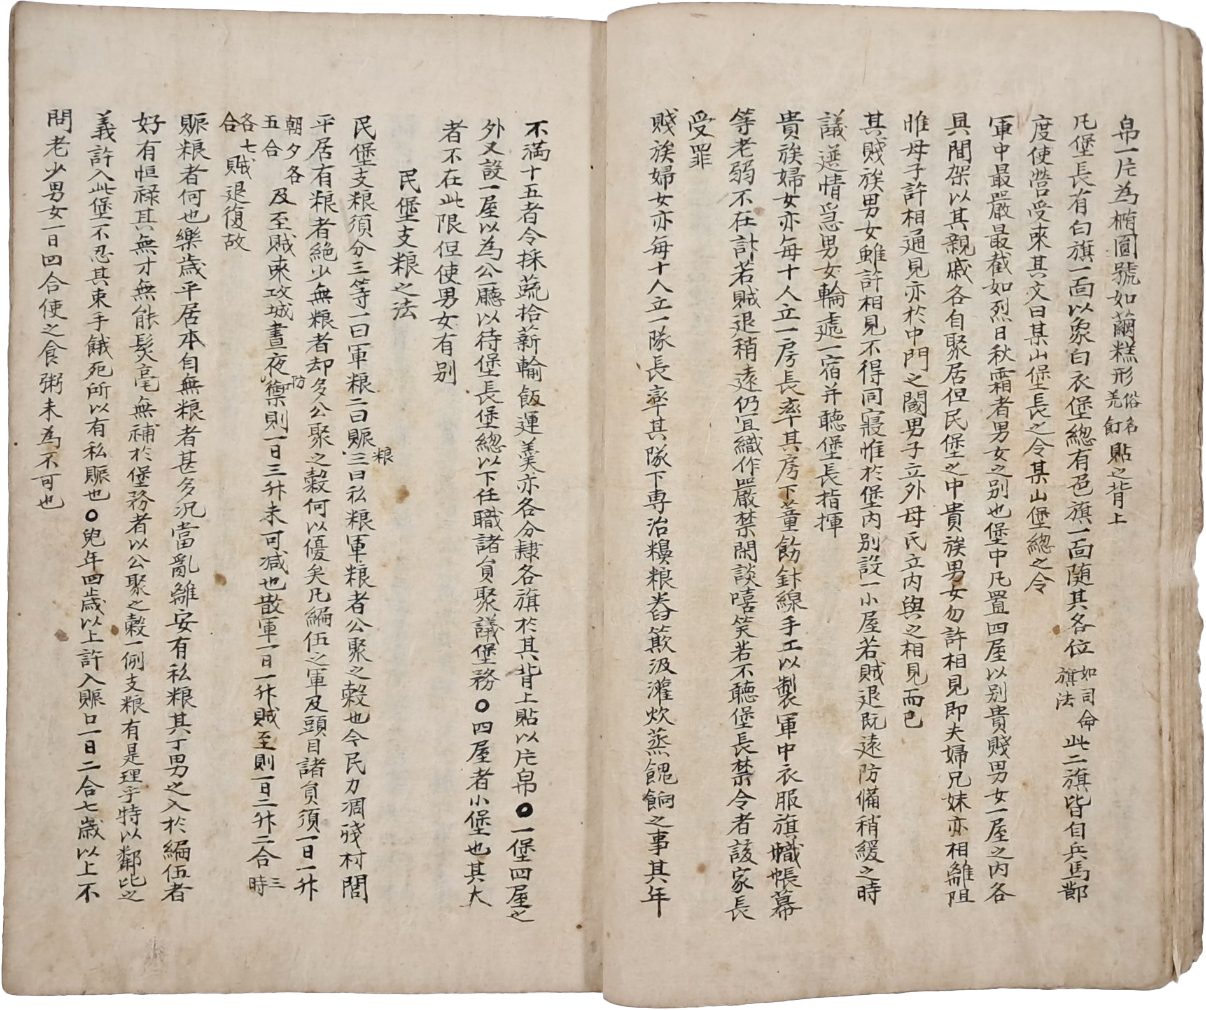 帛一片為橢圓號如繭糕形俗名羌飣貼之背上
凡堡長有白旗一面以象白衣堡緫有皂旗一面随其各位如司命旗法此二旗皆自兵馬節
度使營受來其文曰某山堡長之令某山堡緫之令
軍中最嚴最截如烈日秋霜者男女之别也堡中凡置四屋以别貴賤男女一屋之内各
具間架以其親戚各自聚居但民堡之中貴族男女勿許相見即夫婦兄妹亦相離阻
惟母子許相通見亦於中門之閾男子立外母氏立内與之相見而已
其賤族男女雖許相見不得同寢惟於堡内别設一小屋若賊退既遠防備稍緩之時
議遂情㤂男女輪遞一宿并聽堡長指揮
貴族婦女亦每十人立一房長率其房下董飭針線手工以製軍中衣服旗幟帳幕
等老弱不在計若賊退稍遠仍宜織作嚴禁閒談嘻笑若不聽堡長禁令者該家長
受罪
賤族婦女亦每十人立一隊長率其隊下専治糗粮舂簸汲灌炊蒸餽餉之事其年
不滿十五者令採蔬拾薪輸飯運羹亦各分隷各旗於其背上貼以片帛〇一堡四屋之
外又設一屋以為公廳以待堡長堡緫以下任職諸員聚議堡務〇四屋者小堡也其大
者不在此限但使男女有别
民堡支粮之法
民堡支粮須分三等一曰軍粮二曰賑粮三曰私粮軍粮者公聚之穀也今民力凋殘村閭
平居有粮者絶少無粮者却多公聚之穀何以優矣凡編伍之軍及頭目諸員須一日一升
朝夕各五合及至賊來攻城晝夜防禦則一日三升未可减也散軍一日一升賊至則一日二升二合三時
各七合賊退復故
賑粮者何也樂歳平居本自無粮者甚多况當亂離安有私粮其丁男之入於編伍者
好有恒禄其無才無能髮毫無補於堡務者以公聚之穀一例支粮有是理乎特以鄰比之
義許入此堡不忍其束手餓死所以有私賑也〇兒年四歳以上許入賑口一日二合七歳以上不
問老少男女一日四合使之食粥未為不可也